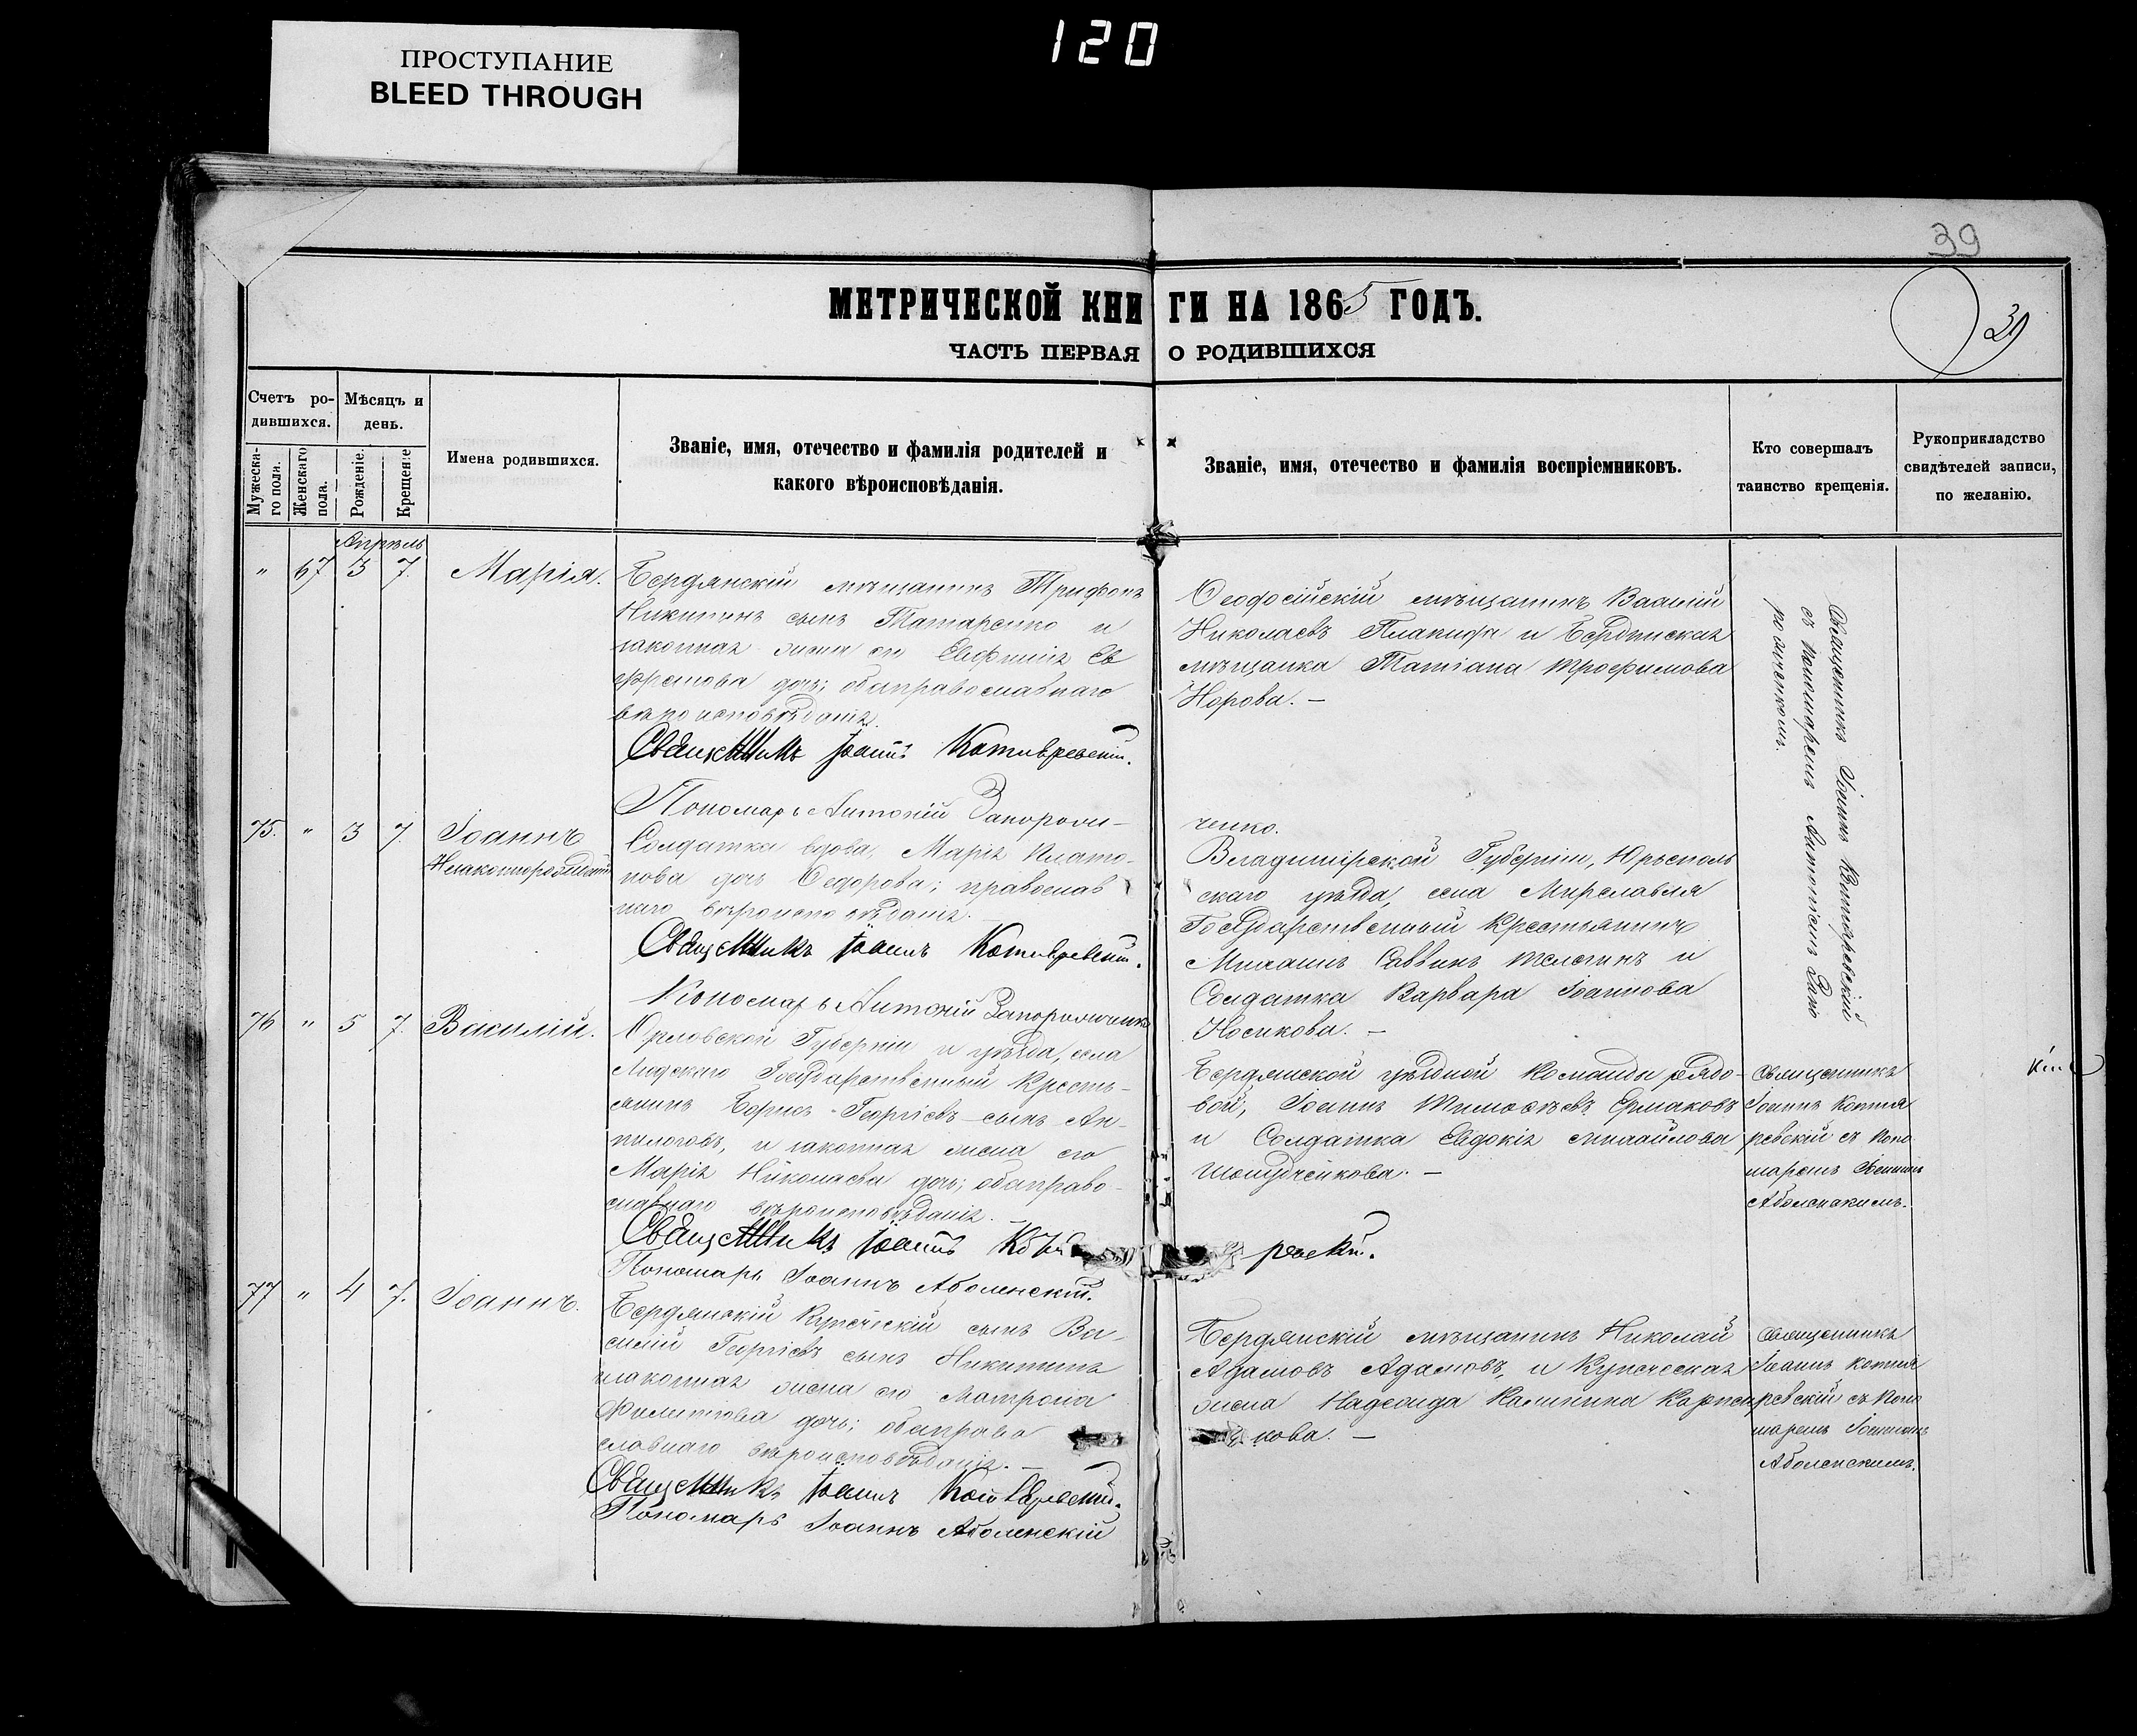 120
ПРОСТУПАНИЕ
BLEED THROUGH
39
МЕТРИЧЕСКОЙ КНИГИ НА 1865 ГОДЪ.
39
ЧАСТЬ ПЕРВАЯ О РОДИВШИХСЯ
Счетъ ро-
дившихся.
Мужеска-
го пола.
Женскаго
пола.
Мѣсяцъ и
день.
Рожденіе.
Крещеніе
Имена родившихся.
Званіе, имя, отечество и фамилія родителей и
какого вѣроисповѣданія.
Званіе, имя, отечество и фамилія воспріемниковъ.
Кто совершалъ
таинство крещенія.
Рукоприкладство
свидѣтелей записи,
по желанію.
Апрѣль
" 67 3 7. Марія.
Бердянскій мѣщанинъ Трифонъ
Никитинъ сынъ Татаренко и
законная жена его Евфимія Ев
дочь; обаправославнаго
вѣроисповѣданія.
Священникъ Іоаннъ Котляревскій.
Пономарь Антоній Запорож-
Ѳеодосійскій мѣщанинъ
Николаевъ и Бердянская
мѣщанка Татіана Трофимова
Норова. —
Священникъ Іоаннъ Котляревскій
съ пономаремъ Антоніемъ Запо
рожченкомъ.
75. " 3 7. Іоаннъ
Солдатка вдова, Марія Плато-
нова дочь Ѳедорова; православ
наго вѣроисповѣданія. —
Священникъ Іоаннъ Котляревскій.
Пономарь Антоній Запорожченко
ченко.
Владимірской Губерніи, Юрьеполь
скаго уѣзда, села
Государственный Крестьянинъ
Михаилъ Саввинъ Телегинъ и
Солдатка Варвара Іоаннова
Носикова. —
76 " 5 7. Василій.
Орловской Губерніи и уѣзда, села
Государственный Кресть-
янинъ Борисъ Георгіевъ сынъ Ан-
пилоговъ, и законная жена его
Марія Николаева дочь; обаправо-
славнаго вѣроисповѣданія. —
Священникъ Іоаннъ Котля ревскій.
Пономарь Іоаннъ Аболенскій.
Бердянской уѣздной команды рядо-
вой, Іоаннъ Тимоѳѣевъ Ермаковъ
и Солдатка Евдокія Михайлова
Священникъ
Іоаннъ Котля
ревскій съ поно
маремъ Іоанномъ
Аболенскимъ.
77 " 4 7. Іоаннъ.
Бердянскій Купеческій сынъ Ва-
силій Георгіевъ сынъ Никитинъ
и законная жена его Матрона
Филиппова дочь; обаправо
славнаго вѣроисповѣданія. —
Священникъ Іоаннъ Котляревскій.
Пономарь Іоаннъ Аболенскій
Бердянскій мѣщанинъ Николай
Адамовъ Адамовъ, и Купеческая
жена Надежда Калинина
кова. —
Священникъ
Іоаннъ Котля
ревскій съ поно
маремъ Іоанномъ
Аболенскимъ.